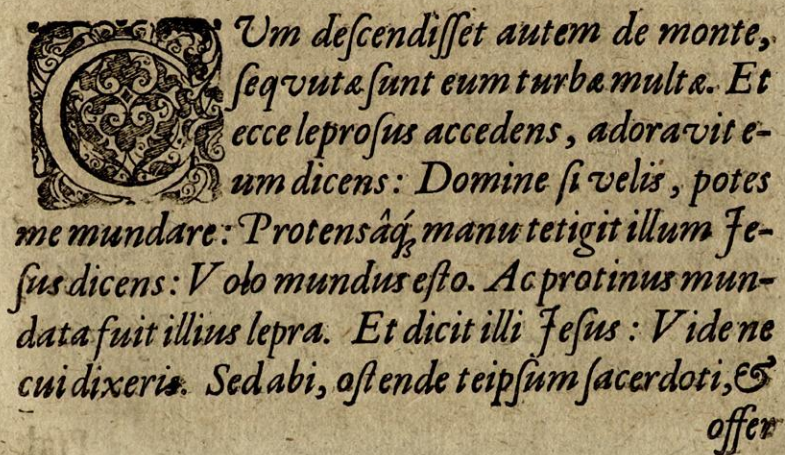 CUm deſcendiſſet autem de monte,
ſeqvutæ ſunt eum turbæ multæ. Et
ecce leproſus accedens, adoravit e-
um dicens: Domine ſi velis, potes
me mundare: Protensâq́ꝫ manu tetigit illum Je-
ſus dicens: Volo mundus eſto. Ac protinus mun-
data fuit illius lepra. Et dicit illi Jeſus: Vide ne
cui dixeris. Sed abi, oſtende teipſum ſacerdoti, &
offer